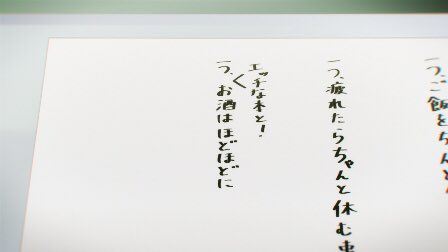 一つ、ご飯をち
一つ、疲れたらちゃんと休む事
エッチな本と!
一つ、お酒はほどほどに